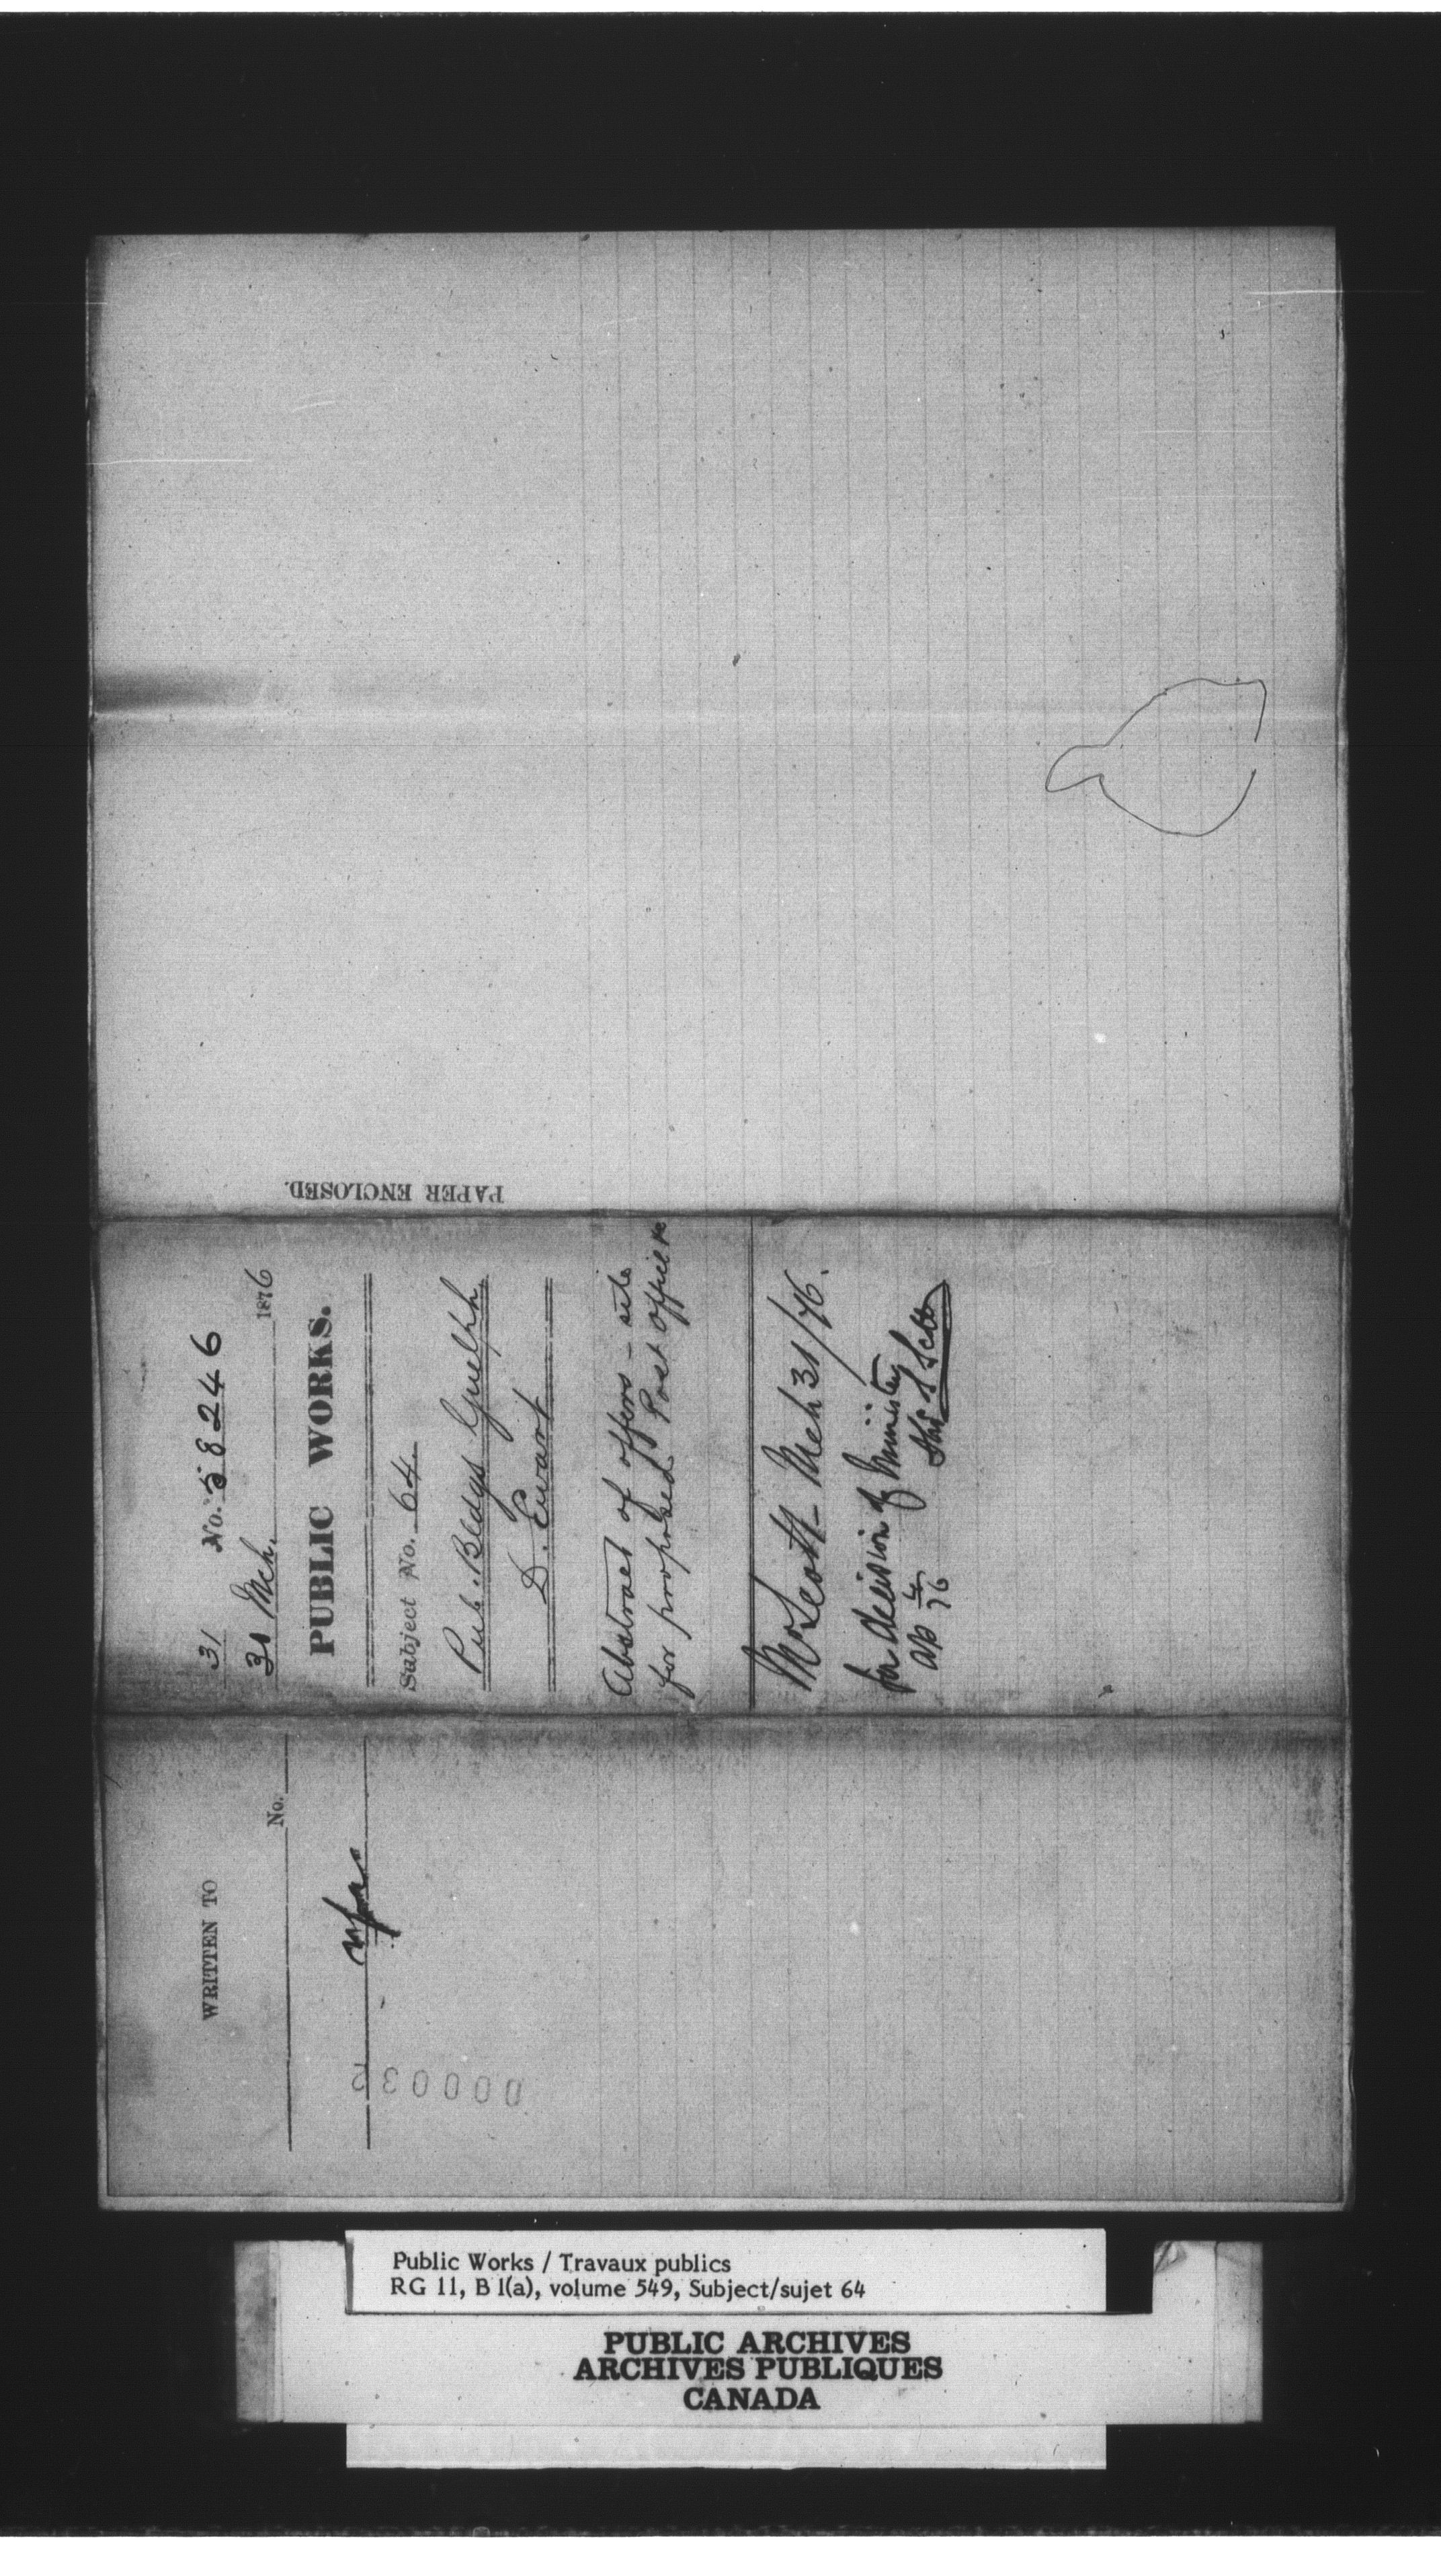 PAPER ENCLOSED.
31 No. 58246
31 Mch. 1876
PUBLIC WORKS.
Subject No. 64.
Pub. Bldgs Guelph.
D. Ewart
Abstract of offers - site
for proposed Post office
Mr Scott - Mch 31/76.
for decision of Minister
WRITTEN TO
No.
000032
Public Works / Travaux publics
RG 11, B 1(a), volume 549, Subject/sujet 64
PUBLIC ARCHIVES
ARCHIVES PUBLIQUES
CANADA